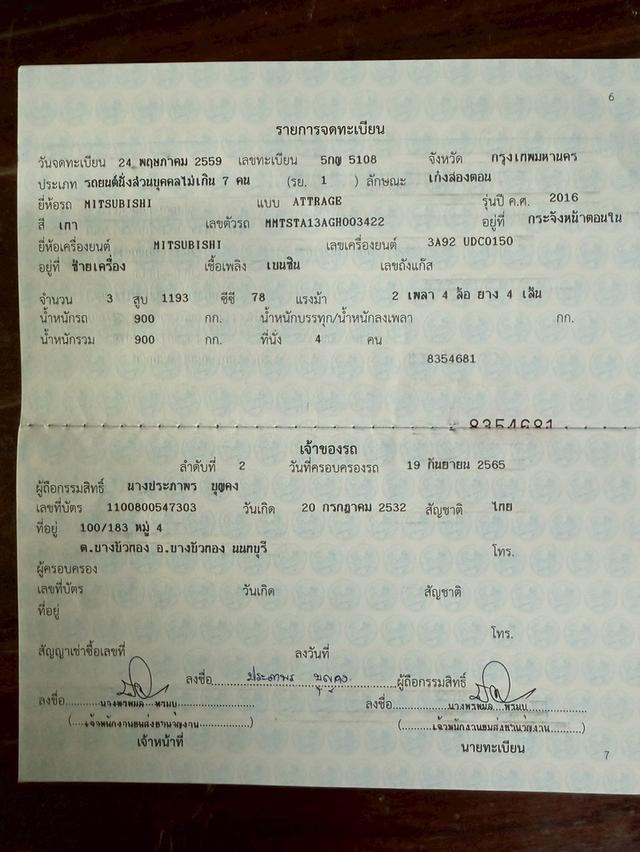 6
รายการจดทะเบียน
วันจดทะเบียน 24 พฤษภาคม 2559 เลขทะเบียน 5กญ 5108 จังหวัด กรุงเทพมหานคร
ประเภท รถยนต์นั่งส่วนบุคคลไม่เกิน 7 คน (รย. 1 ) ลักษณะ เก๋งสองตอน
ยี่ห้อรถ MITSUBISHI แบบ ATTRAGE รุ่นปี ค.ศ. 2016
สี เทา เลขตัวรถ MMTSTA13AGH003422 อยู่ที่ กระจังหน้าตอนใน
ยี่ห้อเครื่องยนต์ MITSUBISHI เลขเครื่องยนต์ 3A92 UDC0150
อยู่ที่ ซ้ายเครื่อง เชื้อเพลิง เบนซิน เลขถังแก๊ส
จำนวน 3 สูบ 1193 ซีซี 78 แรงม้า 2 เพลา 4 ล้อ ยาง 4 เส้น
น้ำหนักรถ 900 กก. น้ำหนักบรรทุก/น้ำหนักลงเพลา กก.
น้ำหนักรวม 900 กก. ที่นั่ง 4 คน
8354681
8354681
เจ้าของรถ
ลำดับที่ 2 วันที่ครอบครองรถ 19 กันยายน 2565
ผู้ถือกรรมสิทธิ์ นางประภาพร บุญคง
เลขที่บัตร 1100800547303 วันเกิด 20 กรกฎาคม 2532 สัญชาติ ไทย
ที่อยู่ 100/183 หมู่ 4
ต.บางบัวทอง อ.บางบัวทอง นนทบุรี โทร.
ผู้ครอบครอง
เลขที่บัตร วันเกิด สัญชาติ
ที่อยู่
โทร.
สัญญาเช่าซื้อเลขที่ ลงวันที่
ลงชื่อ ประภาพร บุญคง ผู้ถือกรรมสิทธิ์
ลงชื่อ ลงชื่อ
(เจ้าพนักงานขนส่งชำนาญงาน) (เจ้าพนักงานขนส่งชำนาญงาน)
เจ้าหน้าที่ นายทะเบียน
7